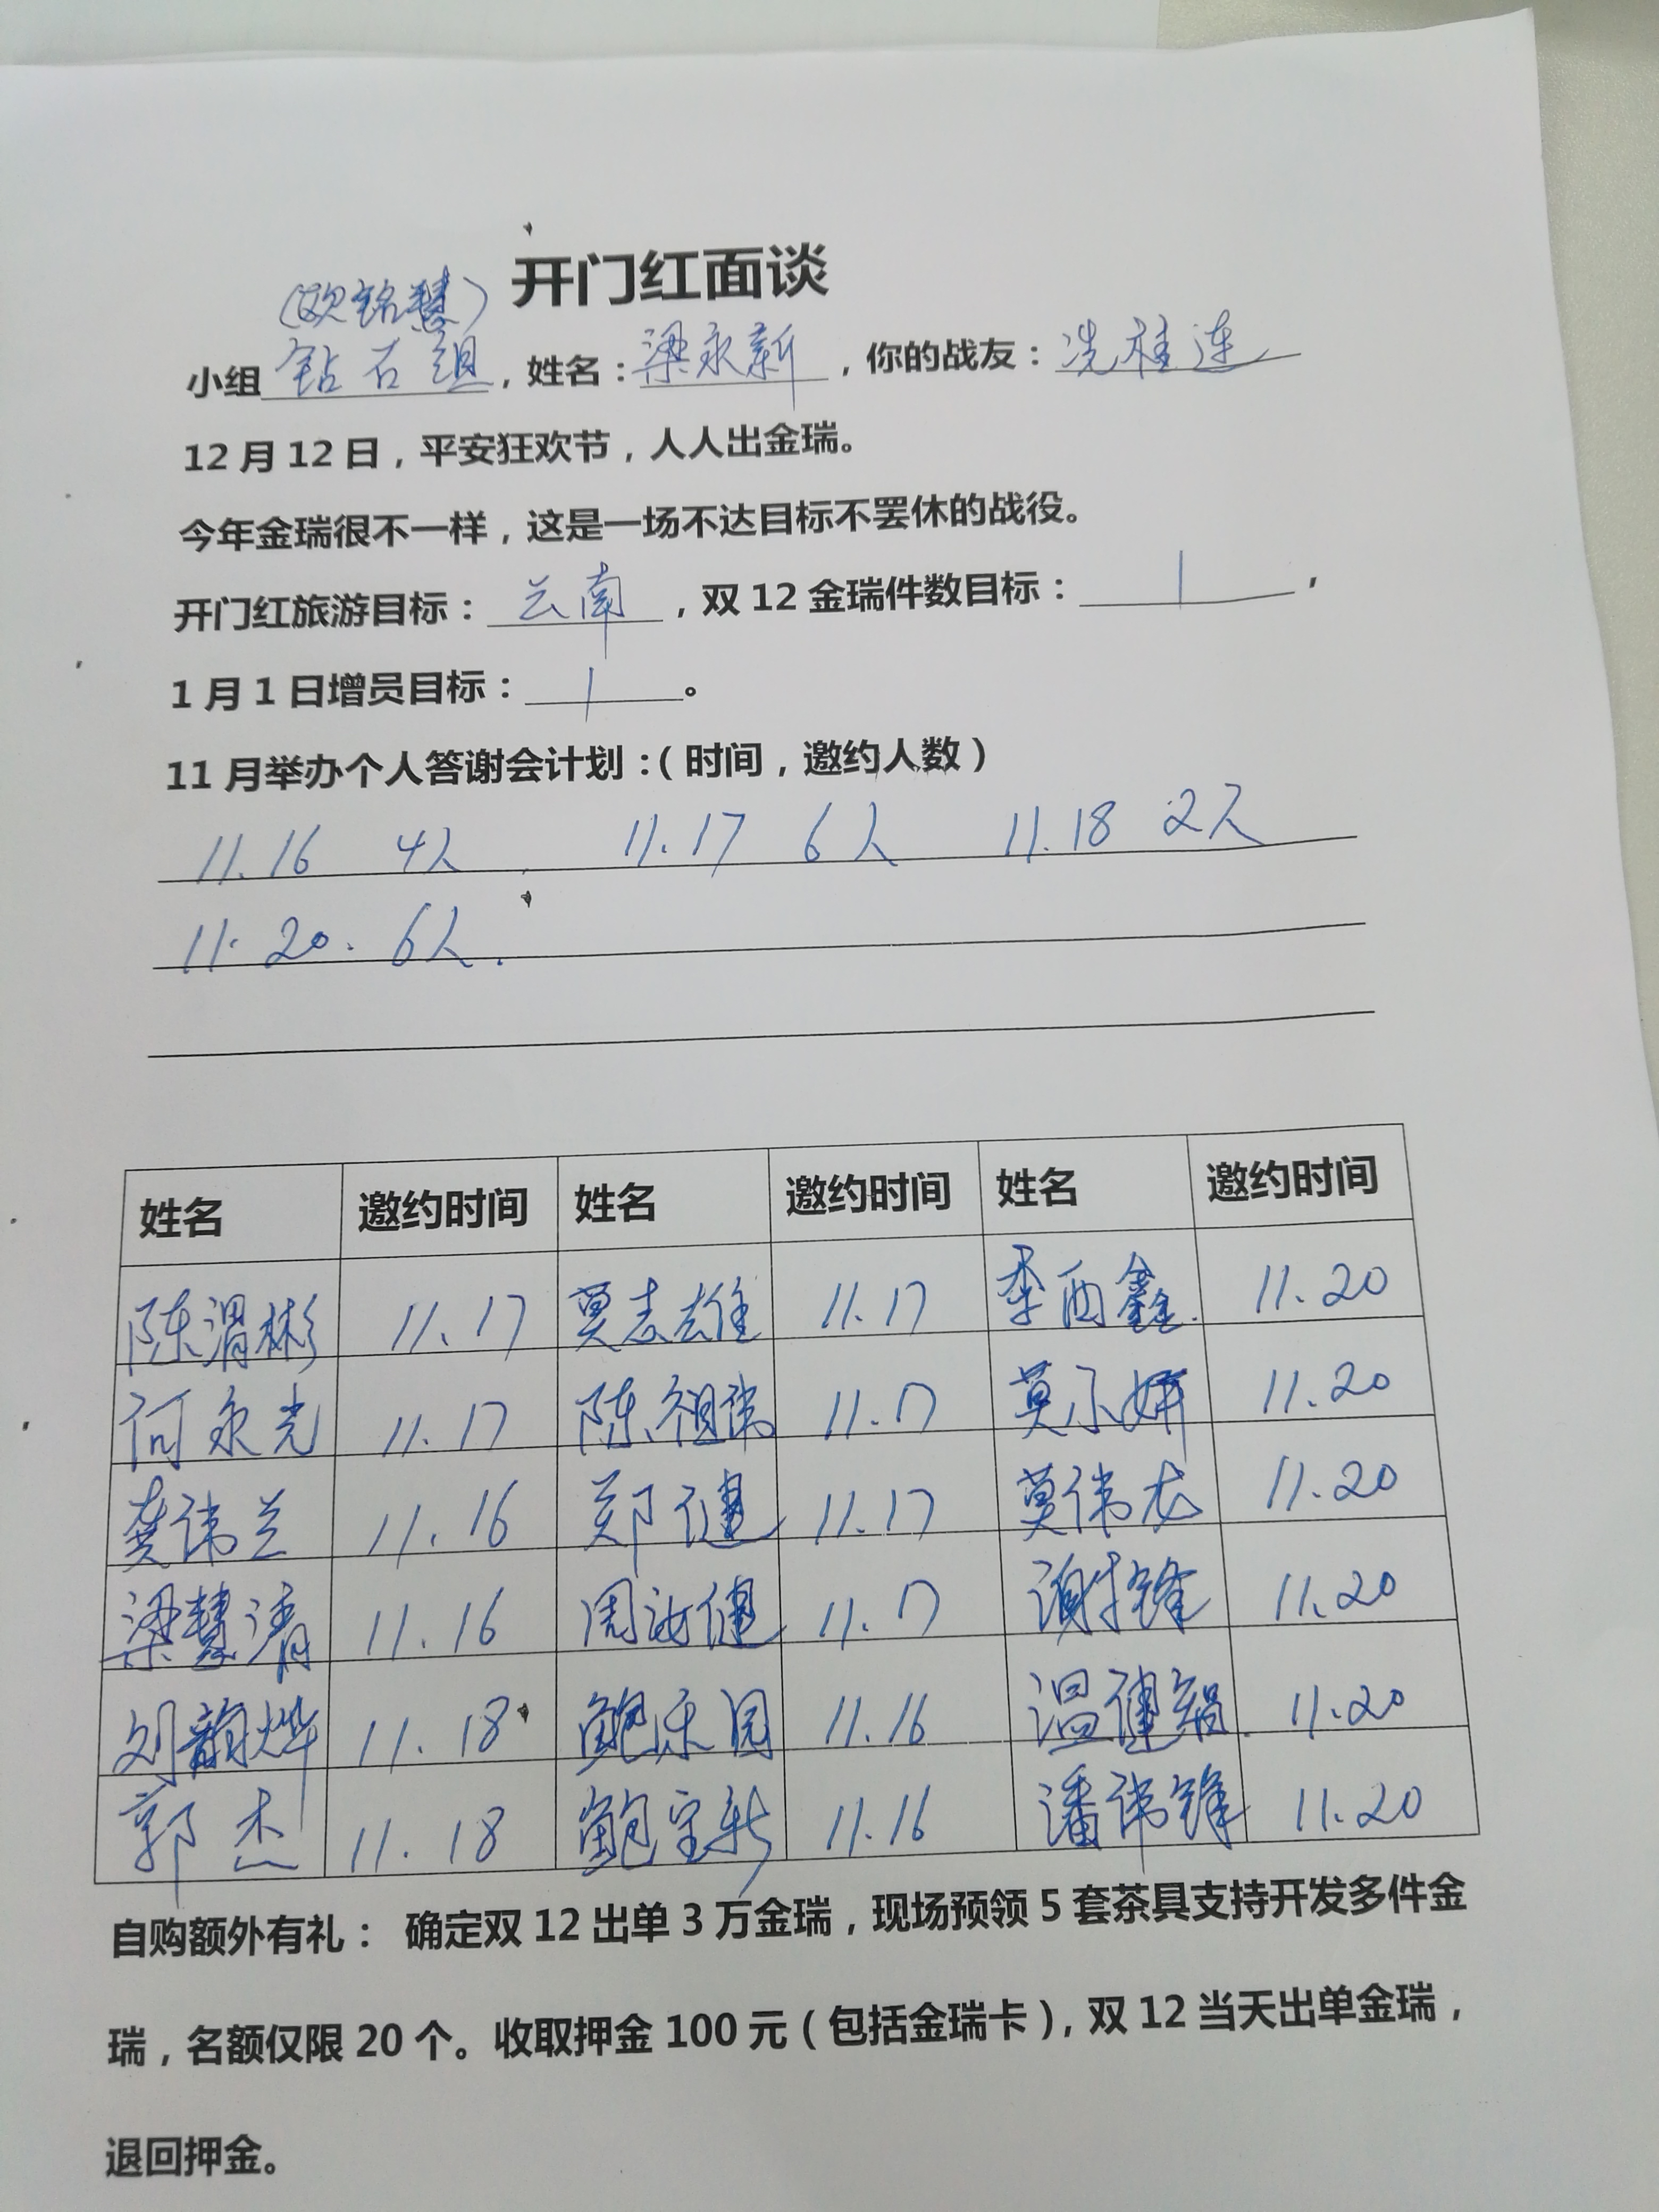 开门红面谈
(欧铭慧)
小组 钻石组，姓名：梁永新，你的战友：冼桂连
12月12日，平安狂欢节，人人出金瑞。
今年金瑞很不一样，这是一场不达目标不罢休的战役。
开门红旅游目标：云南，双12金瑞件数目标：1，
1月1日增员目标：1。
11月举办个人答谢会计划：(时间，邀约人数)
11.16 4人. 11.17 6人 11.18 2人
11.20. 6人.
姓名 邀约时间 姓名 邀约时间 姓名 邀约时间
陈渭彬 11.17 莫志雄 11.17 李西鑫. 11.20
何永光 11.17 陈祖伟 11.17 莫小妍 11.20
龚伟兰 11.16 郑健 11.17 莫伟龙 11.20
梁慧清 11.16 周汝健 11.17 11.20
刘韵烨 11.18 鲍乐园 11.16 11.20
郭杰 11.18 鲍宝新 11.16 潘伟锋 11.20
自购额外有礼： 确定双12出单3万金瑞，现场预领5套茶具支持开发多件金
瑞，名额仅限20个。收取押金100元(包括金瑞卡)，双12当天出单金瑞，
退回押金。